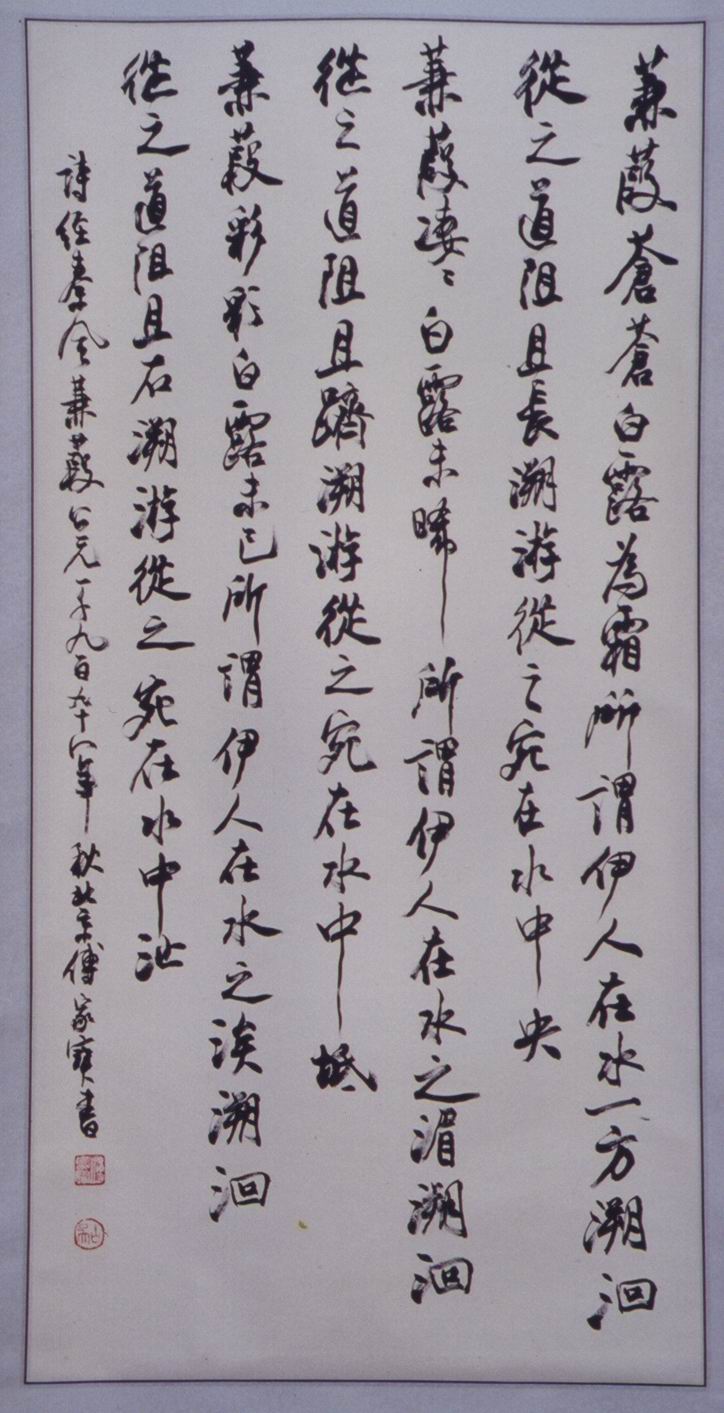 蒹葭蒼蒼白露為霜所謂伊人在水一方溯洄
從之道阻且長溯游從之宛在水中央
蒹葭淒〻白露未晞所謂伊人在水之湄溯洄
從之道阻且躋溯游從之宛在水中坻
蒹葭彩彩白露未已所謂伊人在水之涘溯洄
從之道阻且右溯游從之宛在水中沚
詩經秦風蒹葭公元一千九百九十六年秋北京傅家寶書